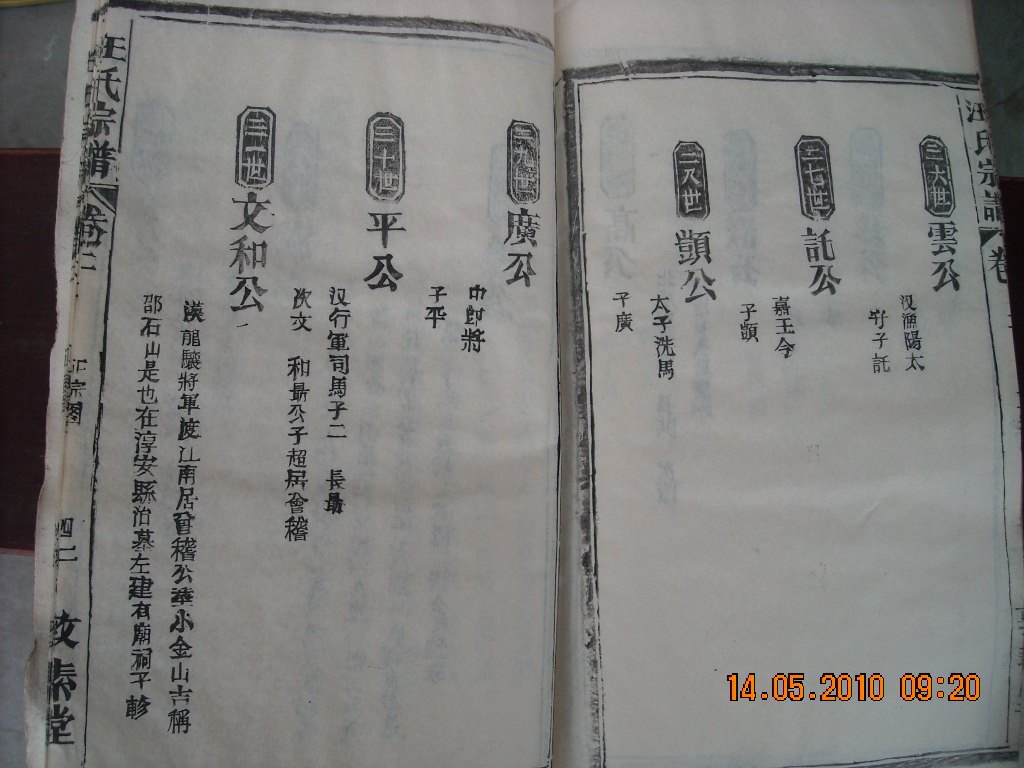 汪氏宗譜 卷
二六世 雲公
汉漁陽太
守子託
二七世 託公
嘉王令
子顗
二八世 顗公
太子洗馬
子廣
二九世 廣公
中郎將
子平
三十世 平公
汉行軍司馬子二 長勗
次文 和勗公子超居會稽
三一世 文和公
漢龍驤將軍渡江南居會稽公葬小金山古稱
邵石山是也在淳安縣治墓左建有廟祠子
汪氏宗譜 卷二
正宗图
四二
敦素堂
14.05.2010 09:20